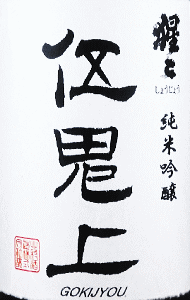 猩々
しょうじょう
純米吟醸
伍鬼上
GOKIJYOU